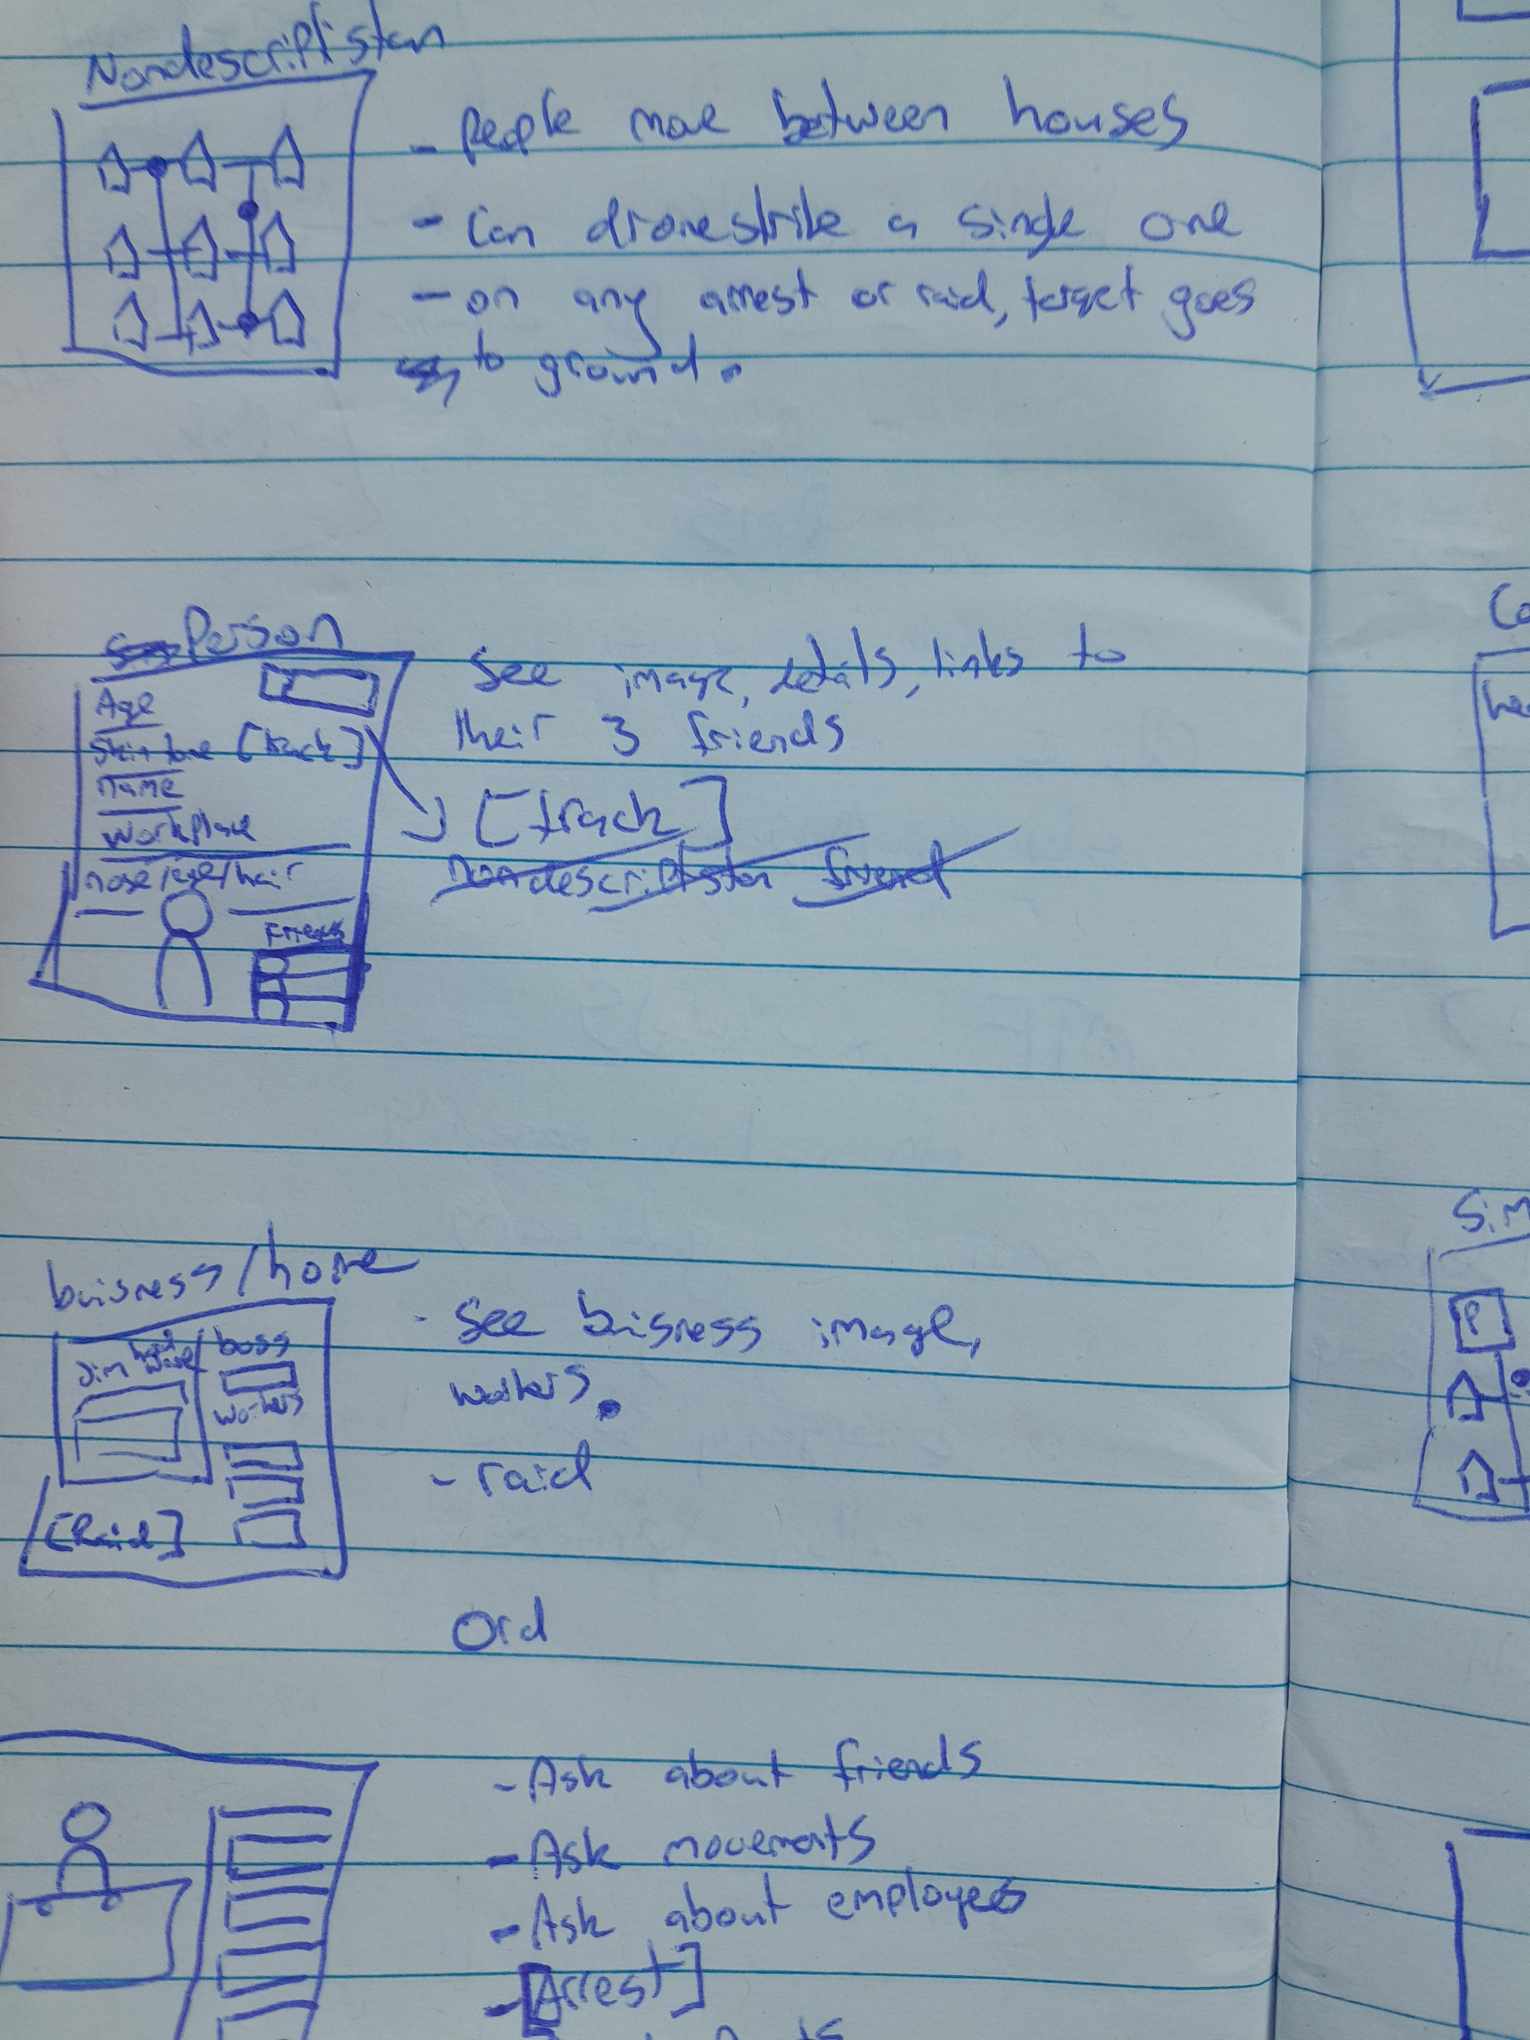 Nondescriptistan
- People move between houses
- Can dronestrike a single one
- on any arrest or raid, target goes
to ground.
Person
Age
Skin tone [track]
name
workplace
nose/eye/hair
Friends
See image, details, links to
their 3 friends
[track]
nondescriptistan friend
buisness/home
Jim
boss
workers
[Raid]
- See buisness image,
workers.
- raid
Ord
- Ask about friends
- Ask movements
- Ask about employees
- [Arrest]
Co
he
Sim
P